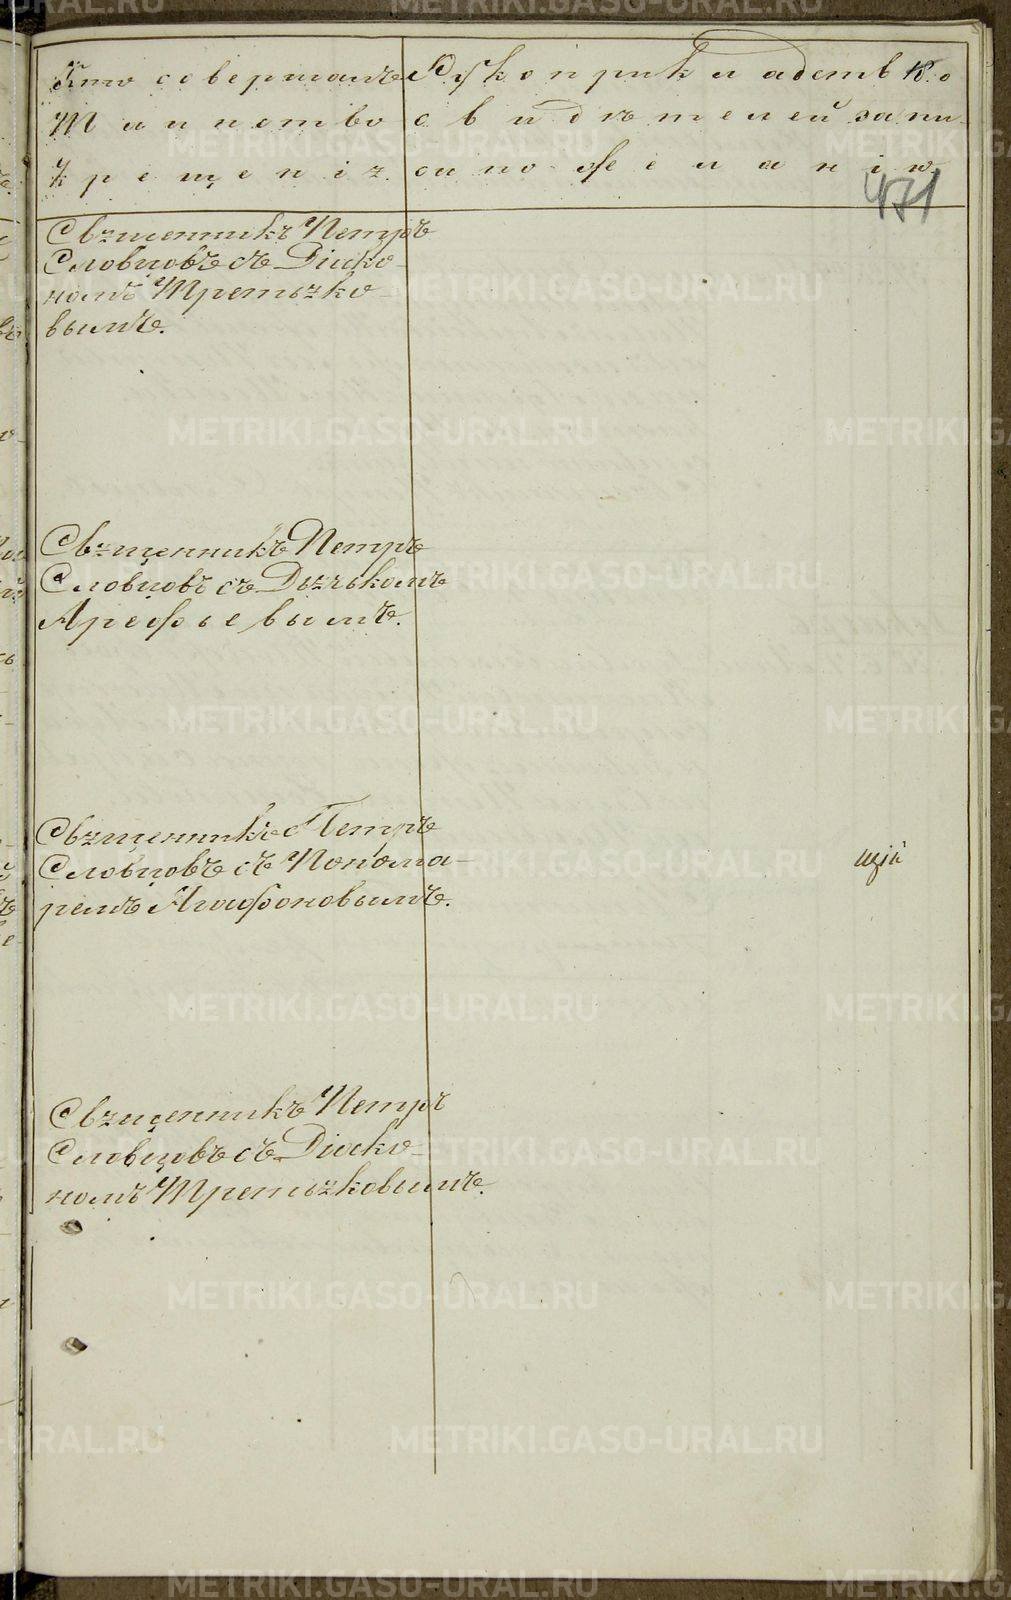 Кто совершалъ
Таинство
Крещенія.
Рукоприкладство
свидѣтелей запи-
си по желанію.
471
Священникъ Петръ
Словцовъ съ Діако-
номъ Третьяко-
вымъ.
Священникъ Петръ
Словцовъ съ Дьячькомъ
Арефьевымъ.
Священникъ Петръ
Словцовъ съ Понома-
ремъ Агафоновымъ.
Священникъ Петръ
Словцовъ съ Діако-
номъ Третьяковымъ.
METRIKI.GASO-URAL.RU